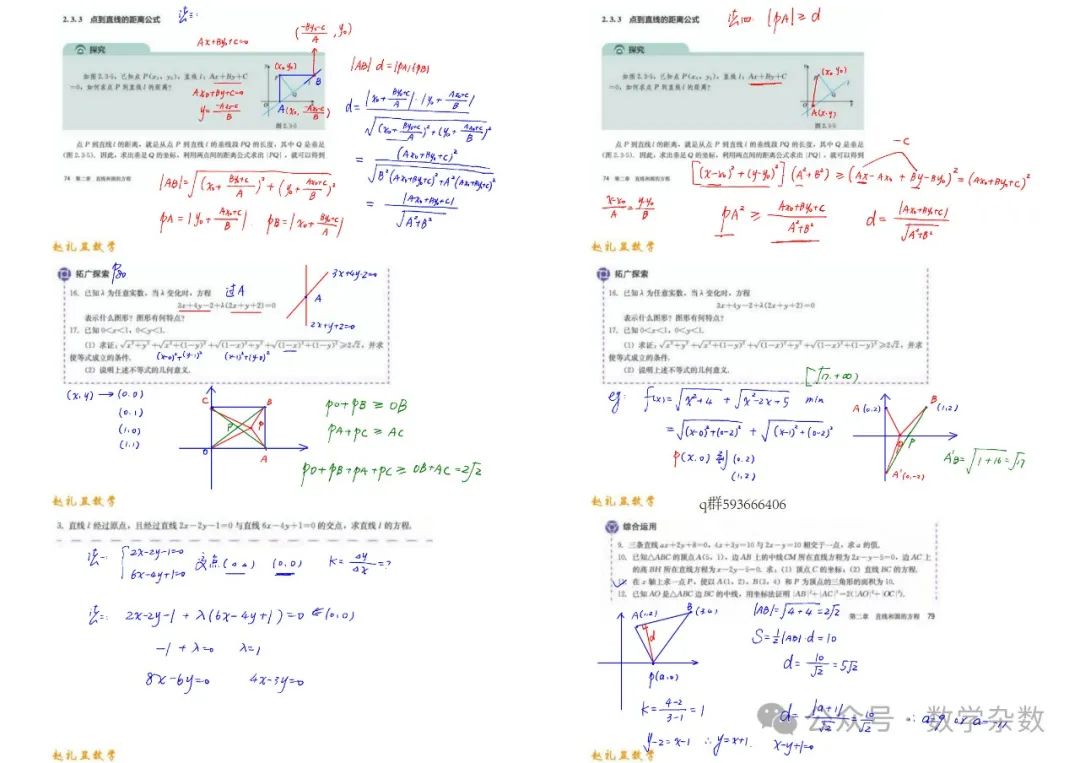 2.3.3 点到直线的距离公式 法三:
探究
Ax+By+C=0
(-By0-C/A, y0)
如图2.3-5,已知点P(x₀, y₀),直线l:Ax+By+C
=0,如何求点P到直线l的距离?
Ax0+By+C=0
y=-Ax0-C/B
(x0,y0)
P
B
Q
O
A(x0, -Ax0-C/B)
图2.3-5
|AB|·d=|PA|·|PB|
d=|x0+By0+C/A|·|y0+Ax0+C/B|/√((x0+By0+C/A)²+(y0+Ax0+C/B)²)
=(Ax0+By0+C)²/√(B²(Ax0+By0+C)²+A²(Ax0+By0+C)²)
=|Ax0+By0+C|/√(A²+B²)
点P到直线l的距离,就是从点P到直线l的垂线段PQ的长度,其中Q是垂足
(图2.3-5).因此,求出垂足Q的坐标,利用两点间的距离公式求出|PQ|,就可以得到
74 第二章 直线和圆的方程
|AB|=√((x0+By0+C/A)²+(y0+Ax0+C/B)²)
PA=|y0+Ax0+C/B|. PB=|x0+By0+C/A|
赵礼显数学
2.3.3 点到直线的距离公式 法四: |PA|≥d
探究
如图2.3-5,已知点P(x₀, y₀),直线l:Ax+By+C
=0,如何求点P到直线l的距离?
P(x0,y0)
Q
O
A(x,y)
图2.3-5
点P到直线l的距离,就是从点P到直线l的垂线段PQ的长度,其中Q是垂足
(图2.3-5).因此,求出垂足Q的坐标,利用两点间的距离公式求出|PQ|,就可以得到
-C
74 第二章 直线和圆的方程
[(x-x0)²+(y-y0)²](A²+B²)≥(Ax-Ax0+By-By0)²=(Ax0+By0+C)²
x-x0/A=y-y0/B
PA²≥Ax0+By0+C/A²+B²
d=|Ax0+By0+C|/√(A²+B²)
赵礼显数学
拓广探索 P80
16. 已知λ为任意实数,当λ变化时,方程 过A
3x+4y-2+λ(2x+y+2)=0
表示什么图形?图形有何特点?
3x+4y-2=0
A
2x+y+2=0
17. 已知0<x<1,0<y<1.
(1) 求证:√(x²+y²)+√(x²+(1-y)²)+√((1-x)²+y²)+√((1-x)²+(1-y)²)≥2√2,并求
使等式成立的条件. (x-0)²+(y-1)² (x-1)²+(y-0)²
(2) 说明上述不等式的几何意义.
(x,y)→(0,0)
(0,1)
(1,0)
(1,1)
C
B
P
P
O
A
PO+PB≥OB
PA+PC≥AC
PO+PB+PA+PC≥OB+AC=2√2
赵礼显数学
拓广探索
16. 已知λ为任意实数,当λ变化时,方程
3x+4y-2+λ(2x+y+2)=0
表示什么图形?图形有何特点?
17. 已知0<x<1,0<y<1.
(1) 求证:√(x²+y²)+√(x²+(1-y)²)+√((1-x)²+y²)+√((1-x)²+(1-y)²)≥2√2,并求
使等式成立的条件.
(2) 说明上述不等式的几何意义.
[√17,+∞)
eg: f(x)=√(x²+4)+√(x²-2x+5) min
=√((x-0)²+(0-2)²)+√((x-1)²+(0-2)²)
P(x,0) 到(0,2)
(1,2)
A(0,2)
B(1,2)
P
A'(0,-2)
A'B=√(1+16)=√17
赵礼显数学
q群593666406
3. 直线l经过原点,且经过直线2x-2y-1=0与直线6x-4y+1=0的交点,求直线l的方程.
法一: {2x-2y-1=0
6x-4y+1=0
交点(a,b) (0,0) K=Δy/Δx=?
法二: 2x-2y-1+λ(6x-4y+1)=0 ⇐(0,0)
-1+λ=0 λ=1
8x-6y=0 4x-3y=0
赵礼显数学
综合运用
9. 三条直线ax+2y+8=0,4x+3y=10与2x-y=10相交于一点,求a的值.
10. 已知△ABC的顶点A(5,1),边AB上的中线CM所在直线方程为2x-y-5=0,边AC上
的高BH所在直线方程为x-2y-5=0.求:(1) 顶点C的坐标;(2) 直线BC的方程.
11. 在x轴上求一点P,使以A(1,2),B(3,4)和P为顶点的三角形的面积为10.
12. 已知AO是△ABC边BC的中线,用坐标法证明|AB|²+|AC|²=2(|AO|²+|OC|²).
第二章 直线和圆的方程 79
A(1,2)
B(3,4)
d
P(a,0)
|AB|=√(4+4)=2√2
S=½|AB|·d=10
d=10/√2=5√2
K=4-2/3-1=1
d=|a+1|/√2=10/√2 ∴a=9 或a=-11
y-2=x-1 ∴y=x+1. x-y+1=0
赵礼显数学
公众号·数学杂数